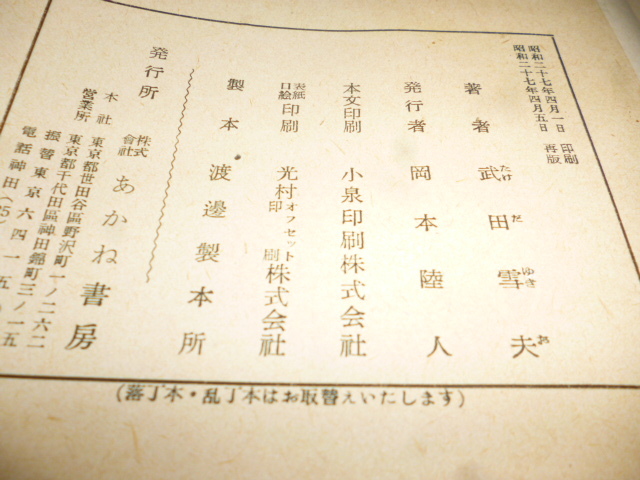 昭和二十七年四月一日 印刷
昭和二十七年四月五日 再版
著者 武田雪夫
たけ だ ゆき お
発行者 岡本陸人
本文印刷 小泉印刷株式会社
表紙口絵印刷 光村オフセット印刷株式会社
製本 渡邊製本所
発行所 株式会社 あかね書房
本社 東京都世田谷區野沢町一ノ二六二
営業所 東京都千代田區神田錦町三ノ一五
振替東京六四一五
電話神田(25)
(落丁本・乱丁本はお取替えいたします)